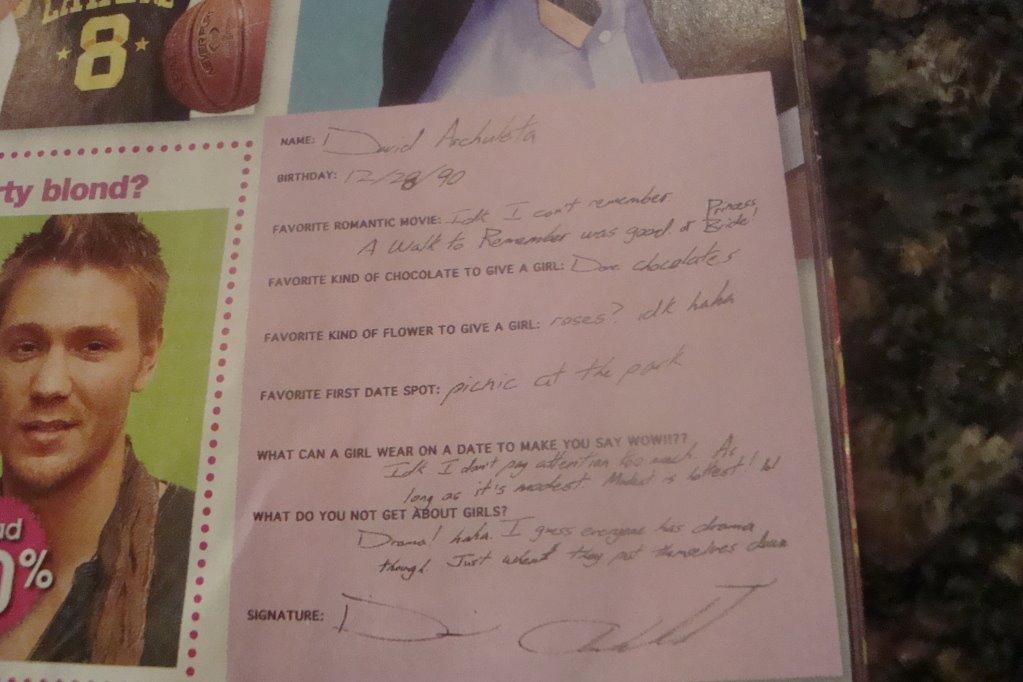 8
rty blond?
NAME: David Archuleta
BIRTHDAY: 12/28/90
FAVORITE ROMANTIC MOVIE: Idk I can't remember.
A Walk to Remember was good or Princess Bride!
FAVORITE KIND OF CHOCOLATE TO GIVE A GIRL: Dove chocolates
FAVORITE KIND OF FLOWER TO GIVE A GIRL: roses? idk haha
FAVORITE FIRST DATE SPOT: picnic at the park
WHAT CAN A GIRL WEAR ON A DATE TO MAKE YOU SAY WOW!!!??
Idk I don't pay attention too much. As
long as it's modest. Modest is hottest! lol
WHAT DO YOU NOT GET ABOUT GIRLS?
Drama! haha. I guess everyone has drama
though. Just when they put themselves down
SIGNATURE:
%